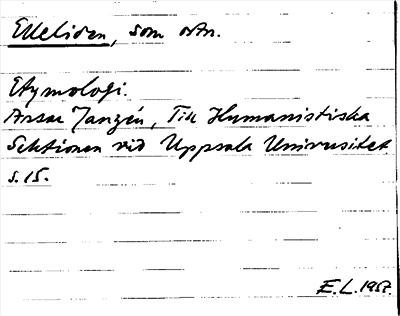 Elleliden, som ortn.
Etymologi.
Assar Janzén, Till Humanistiska
Sektionen vid Uppsala Universitet
s. 15.
E.L. 1957.